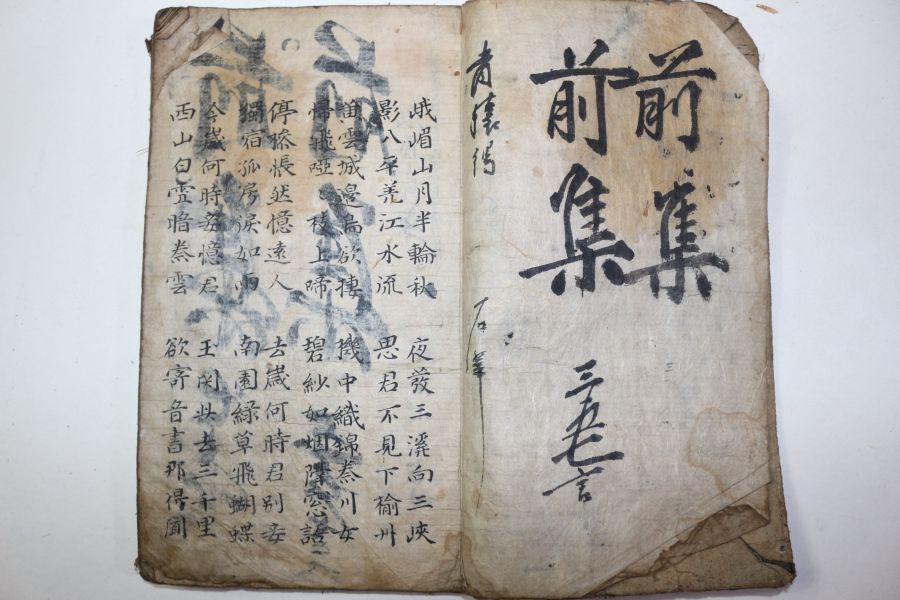 前集
前集
三五七言
峨嵋山月半輪秋
影八平羌江水流
夜發三溪向三峽
思君不見下楡州
黃雲城邊烏欲捿
帰飛啞〻枝上啼
機中織錦秦川女
碧紗如烟隔窓語
停梭悵然憶遠人
獨宿孤房淚如雨
去歲何時君別妾
南園綠草飛蝴蝶
今歲何時妾憶君
西山白雪暗秦雲
玉関此去三千里
欲寄音書那得聞